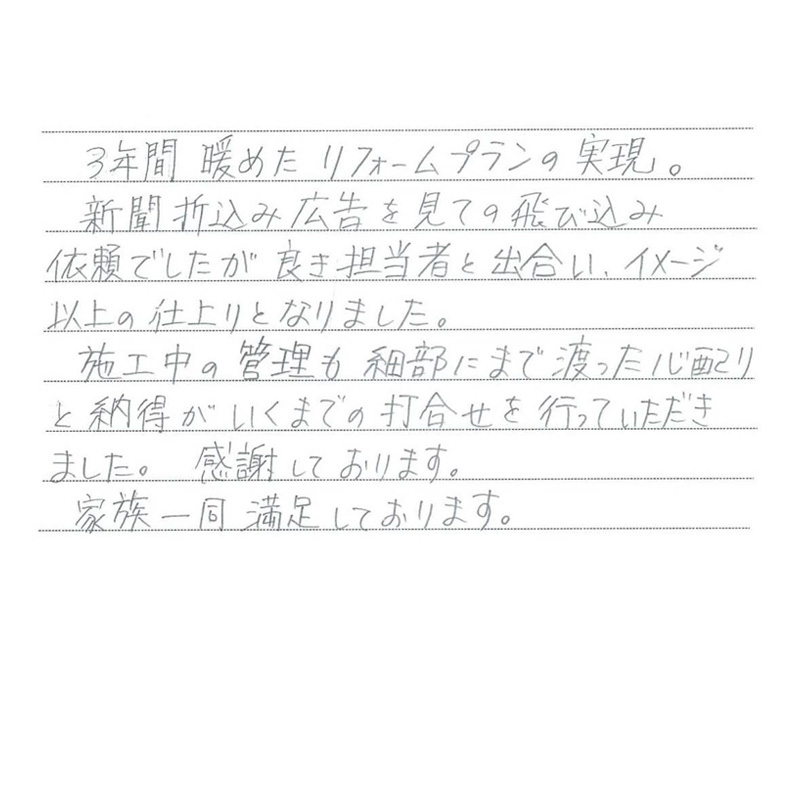 3年間 暖めた リフォームプランの 実現。
新聞 折込み 広告を見ての 飛び込み
依頼でしたが 良き担当者と 出合い、イメージ
以上の 仕上りとなりました。
施工中の 管理も 細部にまで 渡った 心配り
と 納得が いくまでの 打合せを 行っていただき
ました。 感謝しております。
家族一同 満足しております。